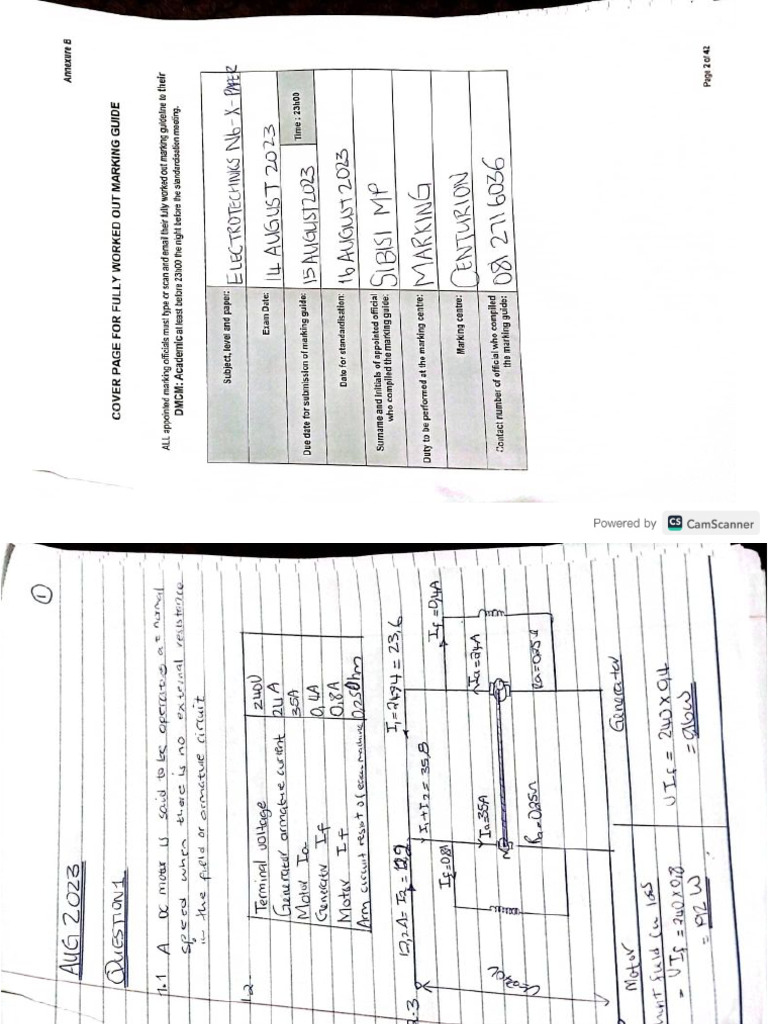 Annexure B
COVER PAGE FOR FULLY WORKED OUT MARKING GUIDE
ALL appointed marking officials must type or scan and email their fully worked out marking guideline to their
DMCM: Academic at least before 23h00 the night before the standardisation meeting.
Subject, level and paper: ELECTROTECHNICS N6-X-PAPER
Exam Date: 14 AUGUST 2023
Due date for submission of marking guide: 15 AUGUST 2023 Time : 23h00
Date for standardisation: 16 AUGUST 2023
Surname and initials of appointed official who compiled the marking guide: SIBISI MP
Duty to be performed at the marking centre: MARKING
Marking centre: CENTURION
Contact number of official who compiled the marking guide: 081 271 6036
Page 2 of 42
Powered by CS CamScanner
1
AUG 2023
QUESTION 1
1.1 A DC motor is said to be operating at normal
speed when there is no external resistance
in the field or armature circuit
1.2.
Terminal voltage 240V
Generator armature current 24 A
Motor Ia 35A
Generator If 0,4A
Motor If 0,8A
Arm circuit resist of each machine 0,25 Ohm
I1 = 24-0,4 = 23,6
I1 + I2 = 35,8
If = 0,4A
If = 0,8A
Ia = 24A
Ia = 35A
Ra = 0,25Ω
Ra = 0,25Ω
Motor
Generator
field cu loss
= VIf = 240 x 0,8
= 192 W
VIf = 240 x 0,4
= 96W